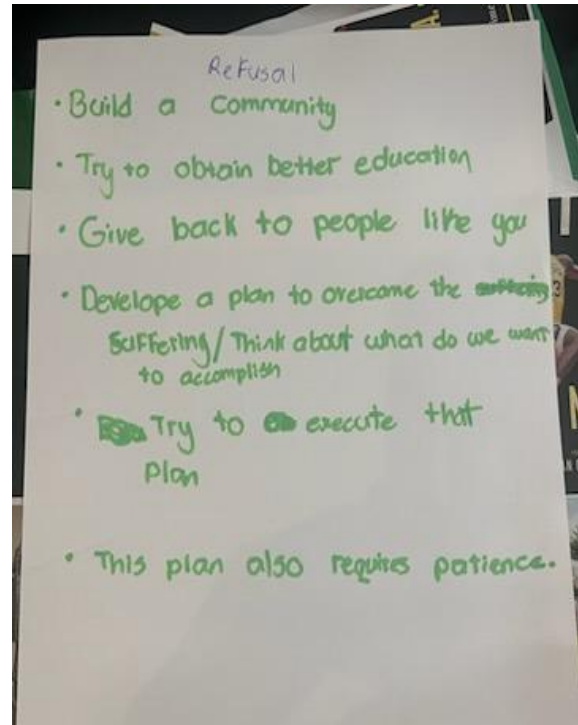 Refusal
• Build a community
• Try to obtain better education
• Give back to people like you
• Develope a plan to overcome the
suffering/Think about what do we want
to accomplish
• Try to execute that
plan
• This plan also requires patience.